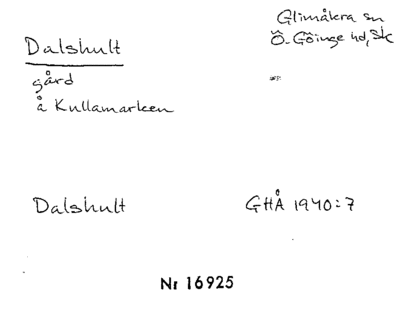 Dalshult
Glimåkra sn
Ö. Göinge hd, Sk
gård
å Kullamarken
Dalshult
GHÅ 1940:7
Nr 16925